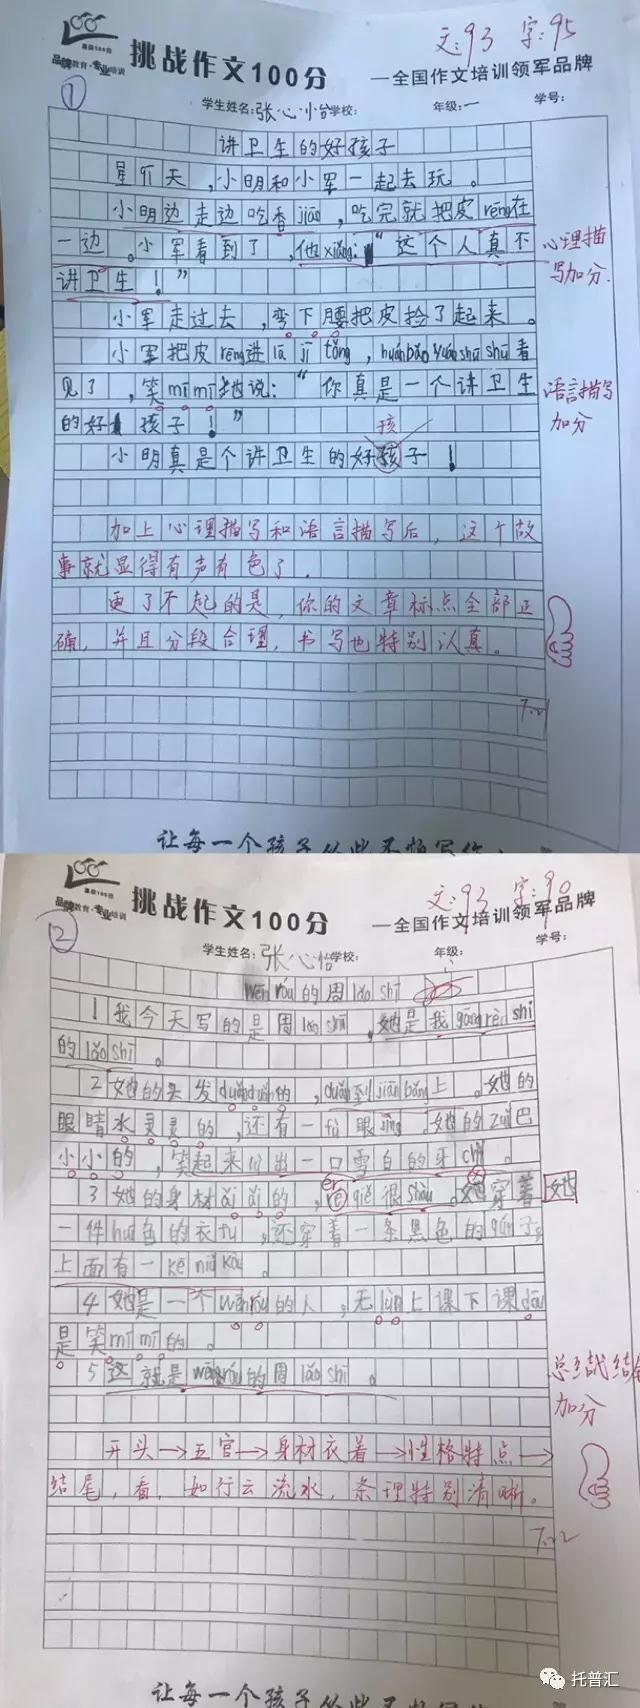 文:93 字:95
品牌教育·专业培训
挑战作文100分
—全国作文培训领军品牌
①
学生姓名:张心怡 学校: 年级:一 学号:
讲卫生的好孩子
星期天,小明和小军一起去玩。
小明边走边吃香jiāo,吃完就把皮rēng在
一边。小军看到了,他xiǎng:“这个人真不
心理描
写加分.
讲卫生!”
小军走过去,弯下腰把皮捡了起来。
小军把皮rēng进lā jī tǒng,huánbǎo yuán shū shu看
见了,笑mī mī地说:“你真是一个讲卫生
语言描写
加分
的好孩子!”
孩
小明真是个讲卫生的好孩子!
加上心理描写和语言描写后,这个故
事就显得有声有色了.
更了不起的是,你的文章标点全部正
确,并且分段合理,书写也特别认真。
7.21
让每一个孩子从此不怕写作
文:93 字:90
品牌教育·专业培训
挑战作文100分
—全国作文培训领军品牌
②
学生姓名:张心怡 学校: 年级: 学号:
wēn róu的周lǎo shī
1我今天写的是周lǎo shī,她是我gāng rèn shi
的lǎo shī。
2她的头发duǎn duǎn的,duǎn到jiān bǎng上。她的
眼睛水灵灵的,还有一fù眼jìng。她的zuǐ巴
小小的,笑起来lòu出一口雪白的牙chǐ。
3她的身材ǎi ǎi的,ér qiě很shòu。她穿着
她
一件huī色的衣fu,还穿着一条黑色的qún子,
上面有一kē niǔ kòu。
4她是一个wēn róu的人,无lùn上课下课dōu
是笑mī mī的。
5这就是wēn róu的周lǎo shī。
加分
开头→五官→身材衣着→性格特点→
结尾,看,如行云流水,条理特别清晰。
7.22
让每一个孩子从此不怕写作
托普汇